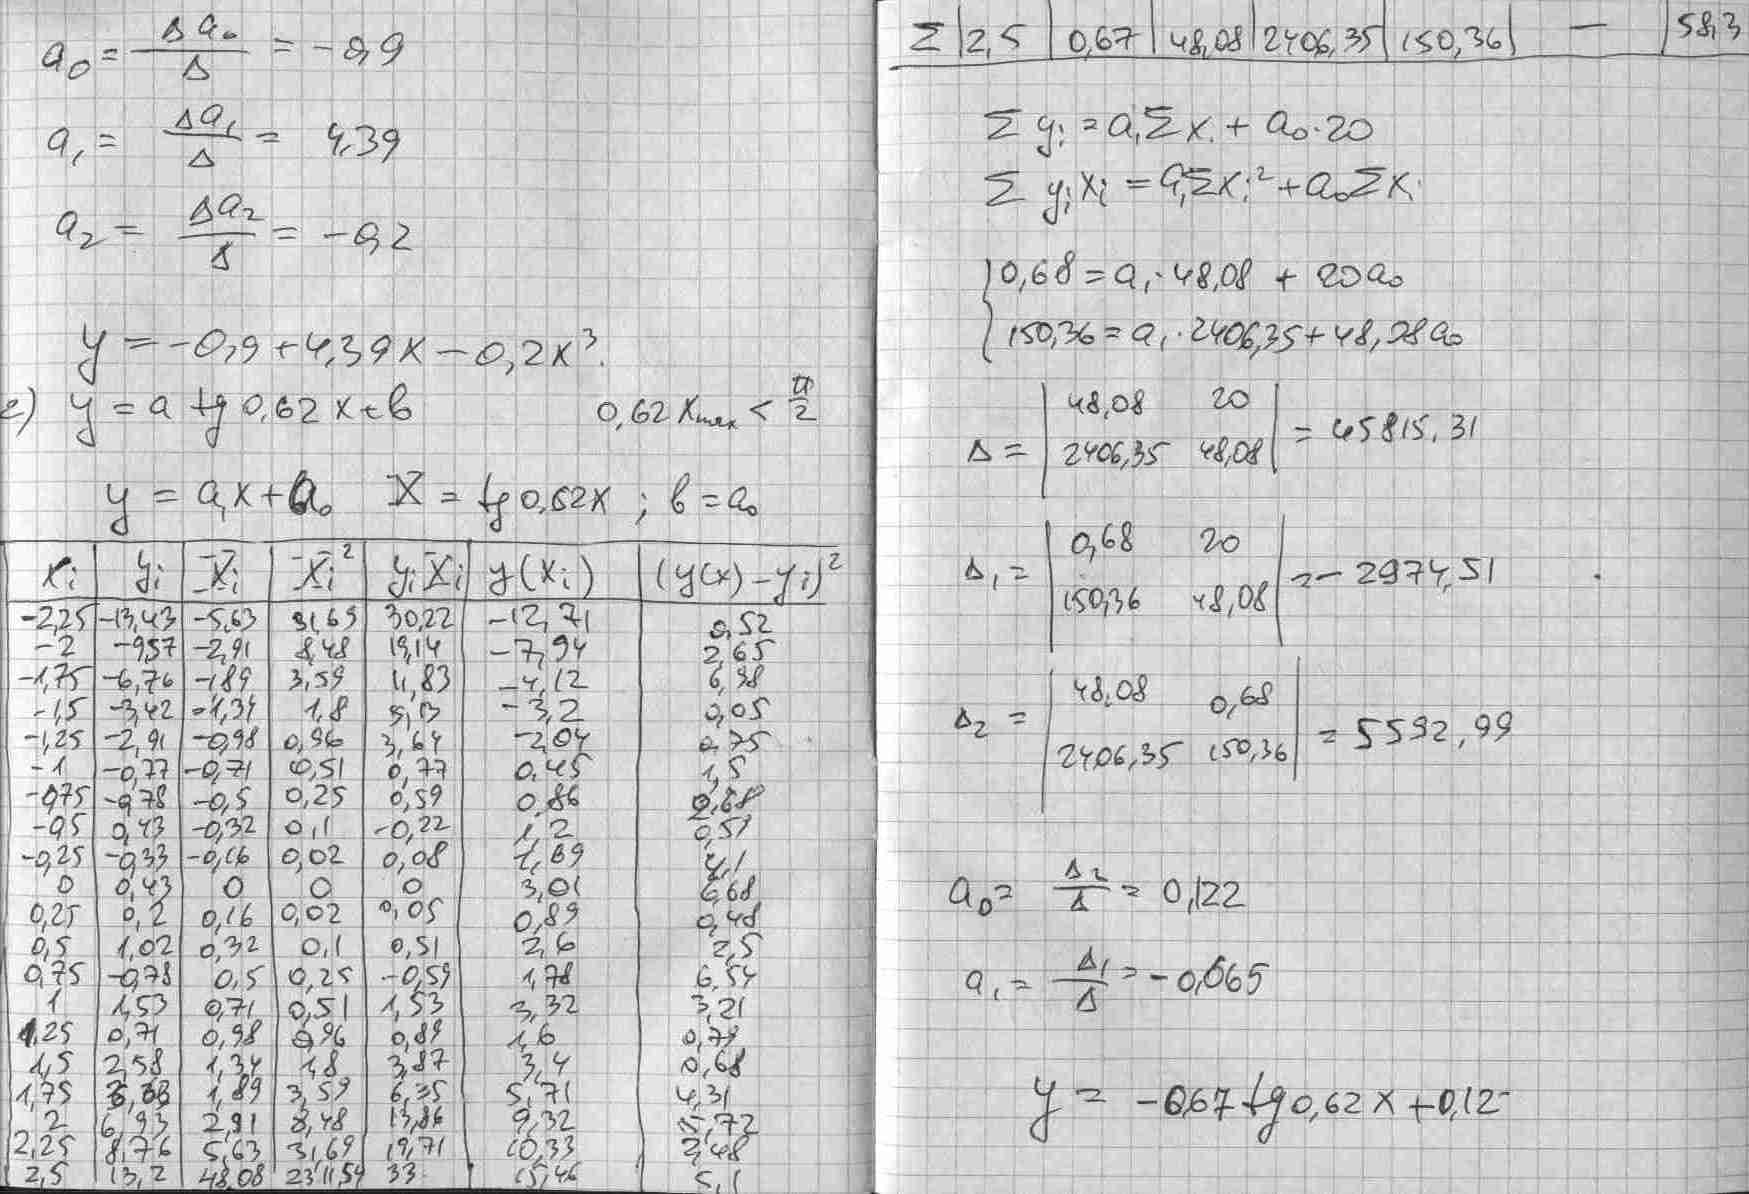 a₀ = Δa₀/Δ = -0,9
a₁ = Δa₁/Δ = 4,39
a₂ = Δa₂/Δ = -0,2
y = -0,9 + 4,39x - 0,2x³.
y = a tg 0,62x + b 0,62 xmax < π/2
y = a₁x + a₀ X = tg 0,62x ; b = a₀
xi | yi | Xi | Xi² | yiXi | y(xi) | (y(x) - yi)²
-2,25 | -13,43 | -5,63 | 31,69 | 30,22 | -12,71 | 0,52
-2 | -9,57 | -2,91 | 8,48 | 19,14 | -7,94 | 2,65
-1,75 | -6,76 | -1,89 | 3,59 | 11,83 | -4,12 | 6,98
-1,5 | -3,42 | -1,34 | 1,8 | 5,13 | -3,2 | 0,05
-1,25 | -2,91 | -0,98 | 0,96 | 3,64 | -2,04 | 0,75
-1 | -0,77 | -0,71 | 0,51 | 0,77 | 0,45 | 1,5
-0,75 | -0,78 | -0,5 | 0,25 | 0,59 | 0,86 | 2,68
-0,5 | 0,43 | -0,32 | 0,1 | -0,22 | 1,2 | 0,59
-0,25 | -0,33 | -0,16 | 0,02 | 0,08 | 1,69 | 4,1
0 | 0,43 | 0 | 0 | 0 | 3,01 | 6,68
0,25 | 0,2 | 0,16 | 0,02 | 0,05 | 0,89 | 0,48
0,5 | 1,02 | 0,32 | 0,1 | 0,51 | 2,6 | 2,5
0,75 | -0,78 | 0,5 | 0,25 | -0,59 | 1,78 | 6,54
1 | 1,53 | 0,71 | 0,51 | 1,53 | 3,32 | 3,21
1,25 | 0,71 | 0,98 | 0,96 | 0,89 | 1,6 | 0,79
1,5 | 2,58 | 1,34 | 1,8 | 3,87 | 3,4 | 0,68
1,75 | 1,89 | 3,59 | 6,35 | 5,71 | 4,31
2 | 6,93 | 2,91 | 8,48 | 13,86 | 9,32 | 5,72
2,25 | 8,76 | 5,63 | 31,69 | 19,71 | 10,33 | 2,48
2,5 | 13,2 | 48,08 | 2311,54 | 33 | 15,46 | 5,1
Σ | 2,5 | 0,67 | 48,08 | 2406,35 | 150,36 | — | 58,3
Σ yi = a₁Σxi + a₀·20
Σ yixi = a₁Σxi² + a₀Σxi
0,68 = a₁·48,08 + 20a₀
150,36 = a₁·2406,35 + 48,08a₀
Δ = | 48,08 20 | = 45815,31
| 2406,35 48,08 |
Δ₁ = | 0,68 20 | = -2974,51
| 150,36 48,08 |
Δ₂ = | 48,08 0,68 | = 5592,99
| 2406,35 150,36 |
a₀ = Δ₂/Δ = 0,122
a₁ = Δ₁/Δ = -0,065
y = -0,67 tg 0,62x + 0,12